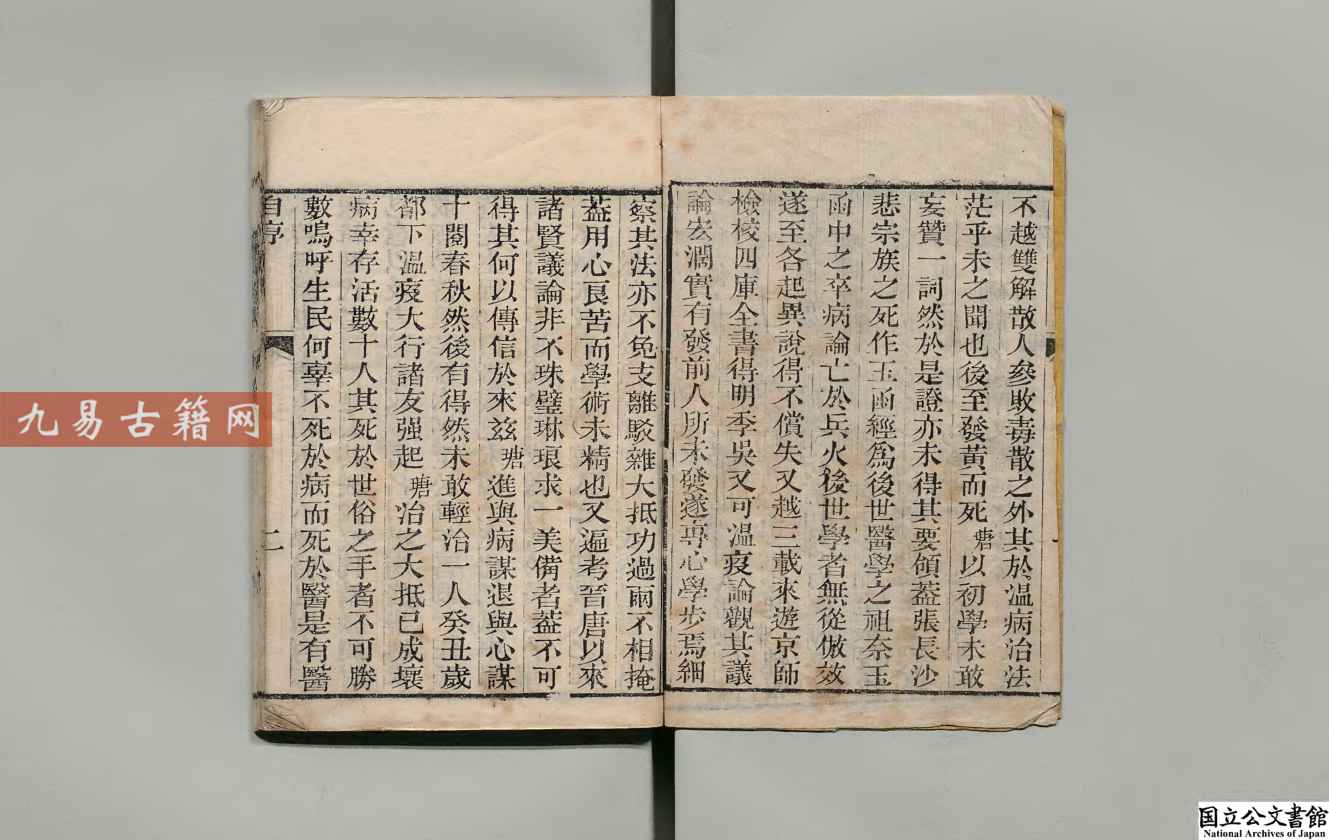 不越雙解散人參敗毒散之外其於溫病治法
茫乎未之聞也後至發黃而死瑭以初學未敢
妄贊一詞然於是證亦未得其要領葢張長沙
悲宗族之死作玉函經爲後世醫學之祖奈玉
函中之卒病論亡於兵火後世學者無從倣效
遂至各起異說得不償失又越三載來遊京師
檢校四庫全書得明季吳又可溫疫論觀其議
論宏濶實有發前人所未發遂專心學步焉細
察其法亦不免支離駁雜大抵功過兩不相掩
葢用心良苦而學術未精也又遍考晉唐以來
諸賢議論非不珠璧琳琅求一美備者葢不可
得其何以傳信於來茲瑭進與病謀退與心謀
十閱春秋然後有得然未敢輕治一人癸丑歲
都下溫疫大行諸友强起瑭治之大抵已成壞
病幸存活數十人其死於世俗之手者不可勝
數嗚呼生民何辜不死於病而死於醫是有醫
自序
二
九易古籍网
国立公文書館
National Archives of Japan